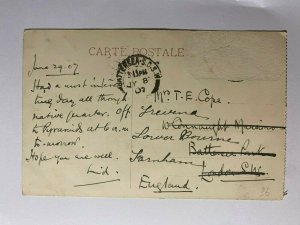 CARTE POSTALE
BATTERSEA S.O. S.W.
3.15PM
JY 8
07
June 29. 07
Had a most interes
ting day all through
native quarter. Off
to Pyramids at 6 a.m.
to-morrow.
Hope you are well.
Enid.
Mr. T. E. Cope.
Trevena
Connaught Mansions
Lower Bourne
Battersea Park
Farnham
London S.W.
England.
36